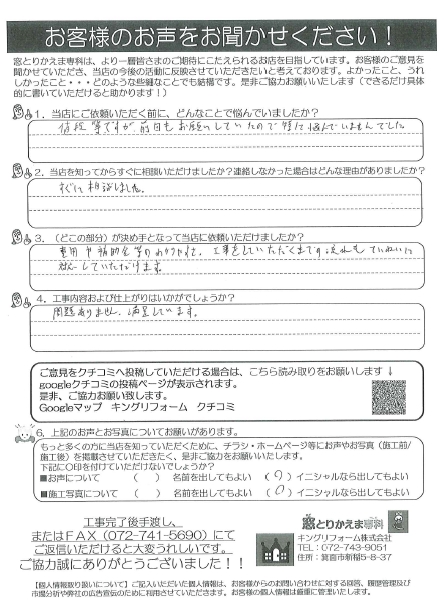 お客様のお声をお聞かせください！
窓とりかえま専科は、より一層皆さまのご期待にこたえられるお店を目指しています。お客様のご意見を
聞かせていただき、当店の今後の活動に反映させていただきたいと考えております。よかったこと、うれ
しかったこと・・・どのような些細なことでも結構です。是非ご協力お願いいたします（できるだけ具体
的に書いていただけると助かります！）
1．当店にご依頼いただく前に、どんなことで悩んでいましたか？
値段等ですが前回もお願いしていたので特に悩んでいませんでした
2．当店を知ってからすぐに相談いただけましたか？連絡しなかった場合はどんな理由がありましたか？
すぐに相談しました。
3．（どこの部分）が決め手となって当店に依頼いただけましたか？
費用や補助金等のわかりやすさ、工事をしていただくまでの流れもていねいに
対応していただけます。
4．工事内容および仕上がりはいかがでしょうか？
問題ありません。満足しています。
ご意見をクチコミへ投稿していただける場合は、こちら読み取りをお願いします↓
googleクチコミの投稿ページが表示されます。
是非、ご協力お願い致します。
Googleマップ　キングリフォーム　クチコミ
6．上記のお声とお写真についてお願いがあります。
もっと多くの方に当店を知っていただくために、チラシ・ホームページ等にお声やお写真（施工前/
施工後）を掲載させていただきたく、是非ご協力をお願いいたします。
下記に○印を付けていただけないでしょうか？
■お声について　（　）　名前を出してもよい　（○）イニシャルなら出してもよい
■施工写真について　（　）　名前を出してもよい　（○）イニシャルなら出してもよい
工事完了後手渡し、
またはFAX（072-741-5690）にて
ご返信いただけると大変うれしいです。
ご協力誠にありがとうございました！！
窓とりかえま専科
キングリフォーム株式会社
TEL：072-743-9051
住所：箕面市新稲5-8-37
【個人情報取り扱いについて】ご記入いただいた個人情報は、お客様からのお問い合わせに対する回答、履歴管理及び
市場分析や弊社の広告宣伝のために利用させていただきます。お客様の個人情報は厳重に管理いたします。